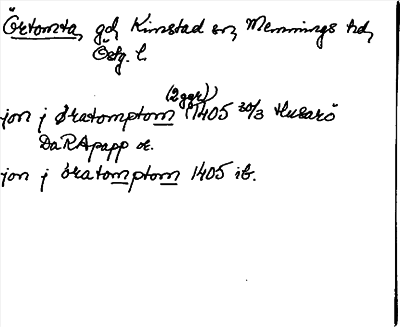 Örtomta, gd, Kimstad sn, Memmings hd,
Östg. l.
(2 ggr)
jon j ØratomptoM 1405 30/3 Husarö
DaRApapp or.
jon j oratomptom 1405 ib.